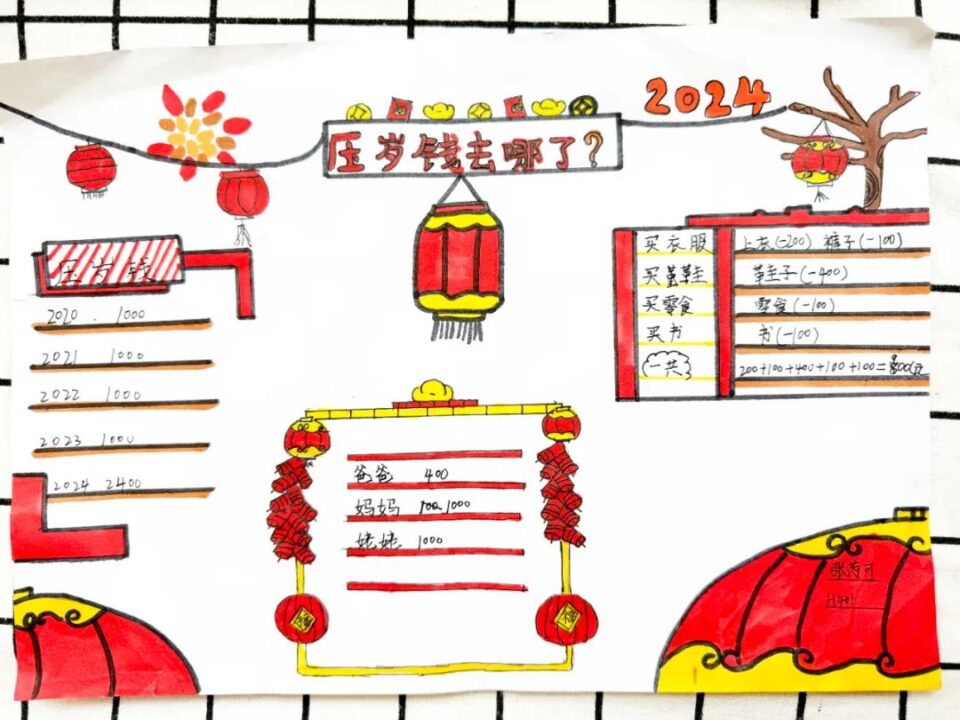 2024
压岁钱去哪了?
压岁钱
2020. 1000
2021 1000
2022 1000
2023 1000
2024 2400
买衣服 上衣(-200) 裤子(-100)
鞋子(-400)
买零食 零食(-100)
买书 书(-100)
一共 200+100+400+100+100=900元
爸爸 400
妈妈 1000
姥姥 1000